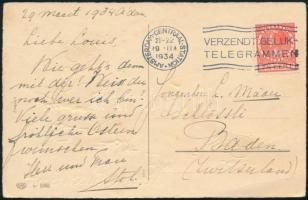 29 Maart 1934 A'dam
Liebe Louis,
Wie geht's denn
mit dir? Weisst du
noch wer ich bin?
Viele gruse und
fröhliche Ostern
wünschen
Herr und Frau
AMSTERDAM-CENTRAAL STATION
21-22
29 III
1934
VERZENDT GELUK-
TELEGRAMMEN
L. Mäder
Schlössli
Baden
(Zwitserland)